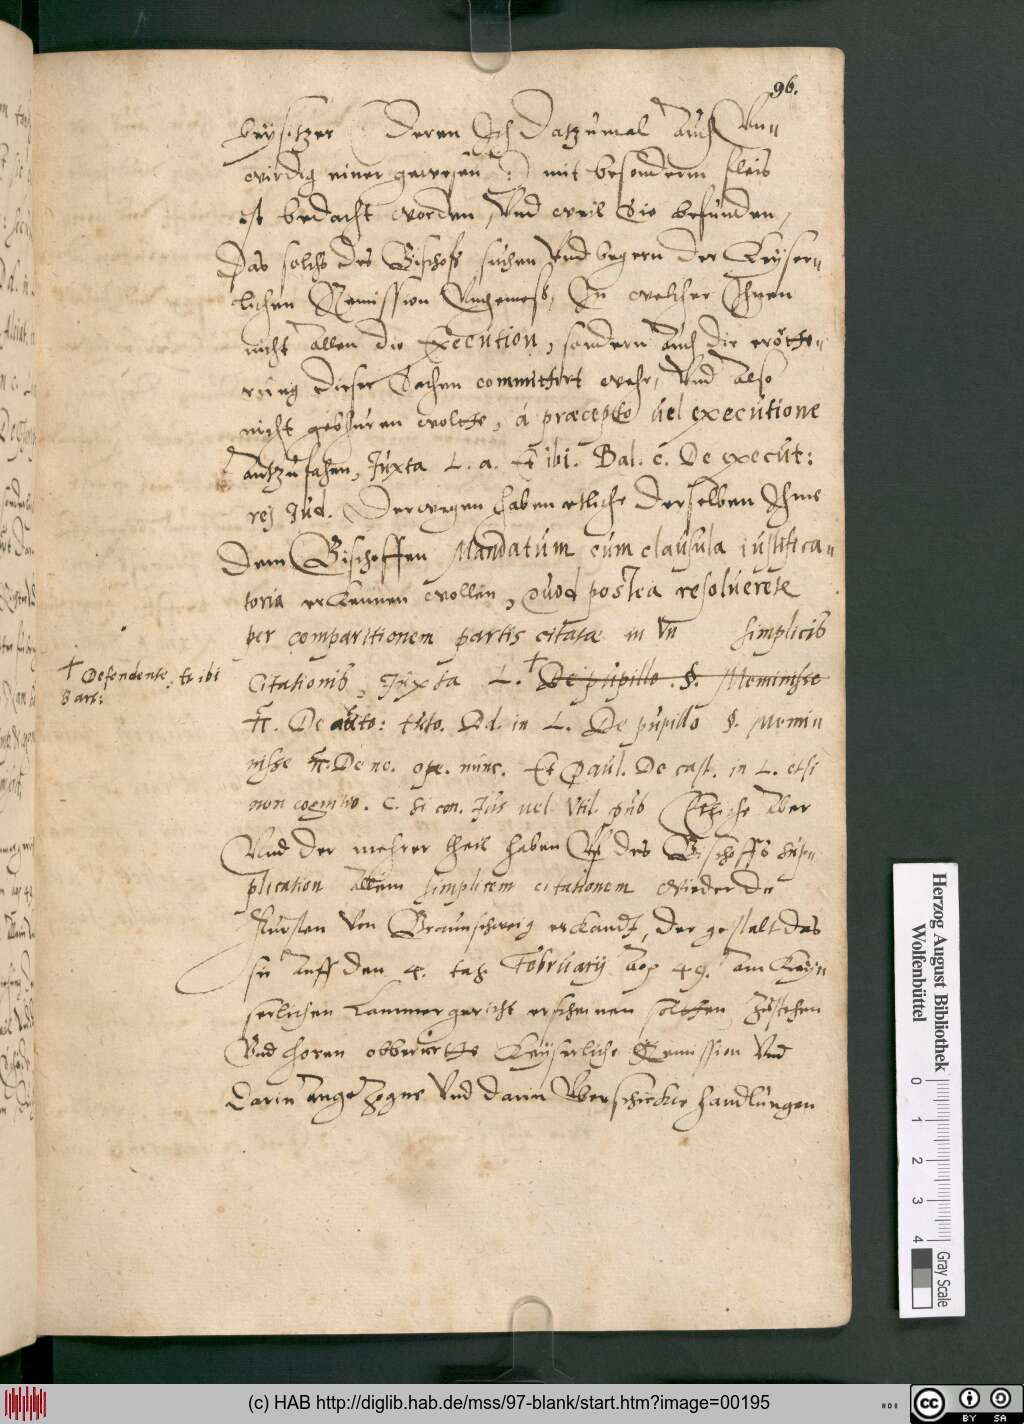 96.
beysitzer (: deren Ich datzumal auch Vn„
wirdig einer gewesen :) mit besonderm fleis
ist bedacht worden, Vnd weil Sie befunden,
Das solchs des Bischofs suchen Vnd begern der Keyser„
lichen Remission Vngemess, In welcher Ihnen
nicht allen die Execution, sondern auch die erörtte„
rung dieser Sachen committirt wehr, Vnd also
nicht gebhüren woltte, á præcepto uel executione
antzufahen, Juxta L. a. Et ibi. Bal. c. De execut:
rej Jud. Derwegen haben etliche derselben Ihme
dem Bischoffen Mandatum cum clausula iustifica„
toria erkennen wollen, quod postea resolueretur
per comparitionem partis citatæ in Vn simplicis
Citationis, Juxta L. † De pupillo. §. Meminisse
† Defendente, Et ibi
Bart:
ff. De aucto: tuto. Dd. in L. De pupillo §. Memin
nisse ff. De no. ope. nunc. Et Paul. De cast. in L. etsi
non cognitio. C. Si con. Jus uel Vtil. pub Etliche aber
Vnd der mehrer theil haben Vf des Bischoffs sup„
plication allein simplicem citationem wieder die
Fursten Von Braunschweig erkandt, der gestalt das
sie auff den 4. tag February Aop 49. am Key„
serlichen Cammergericht erscheinen soltten, zusehen
Vnd horen obberurtte Keyserliche Remission Vnd
darin angezogne Vnd darin Vberschickte handlungen
Herzog August Bibliothek
Wolfenbüttel
0 1 2 3 4
Gray Scale
(c) HAB http://diglib.hab.de/mss/97-blank/start.htm?image=00195
cc BY SA